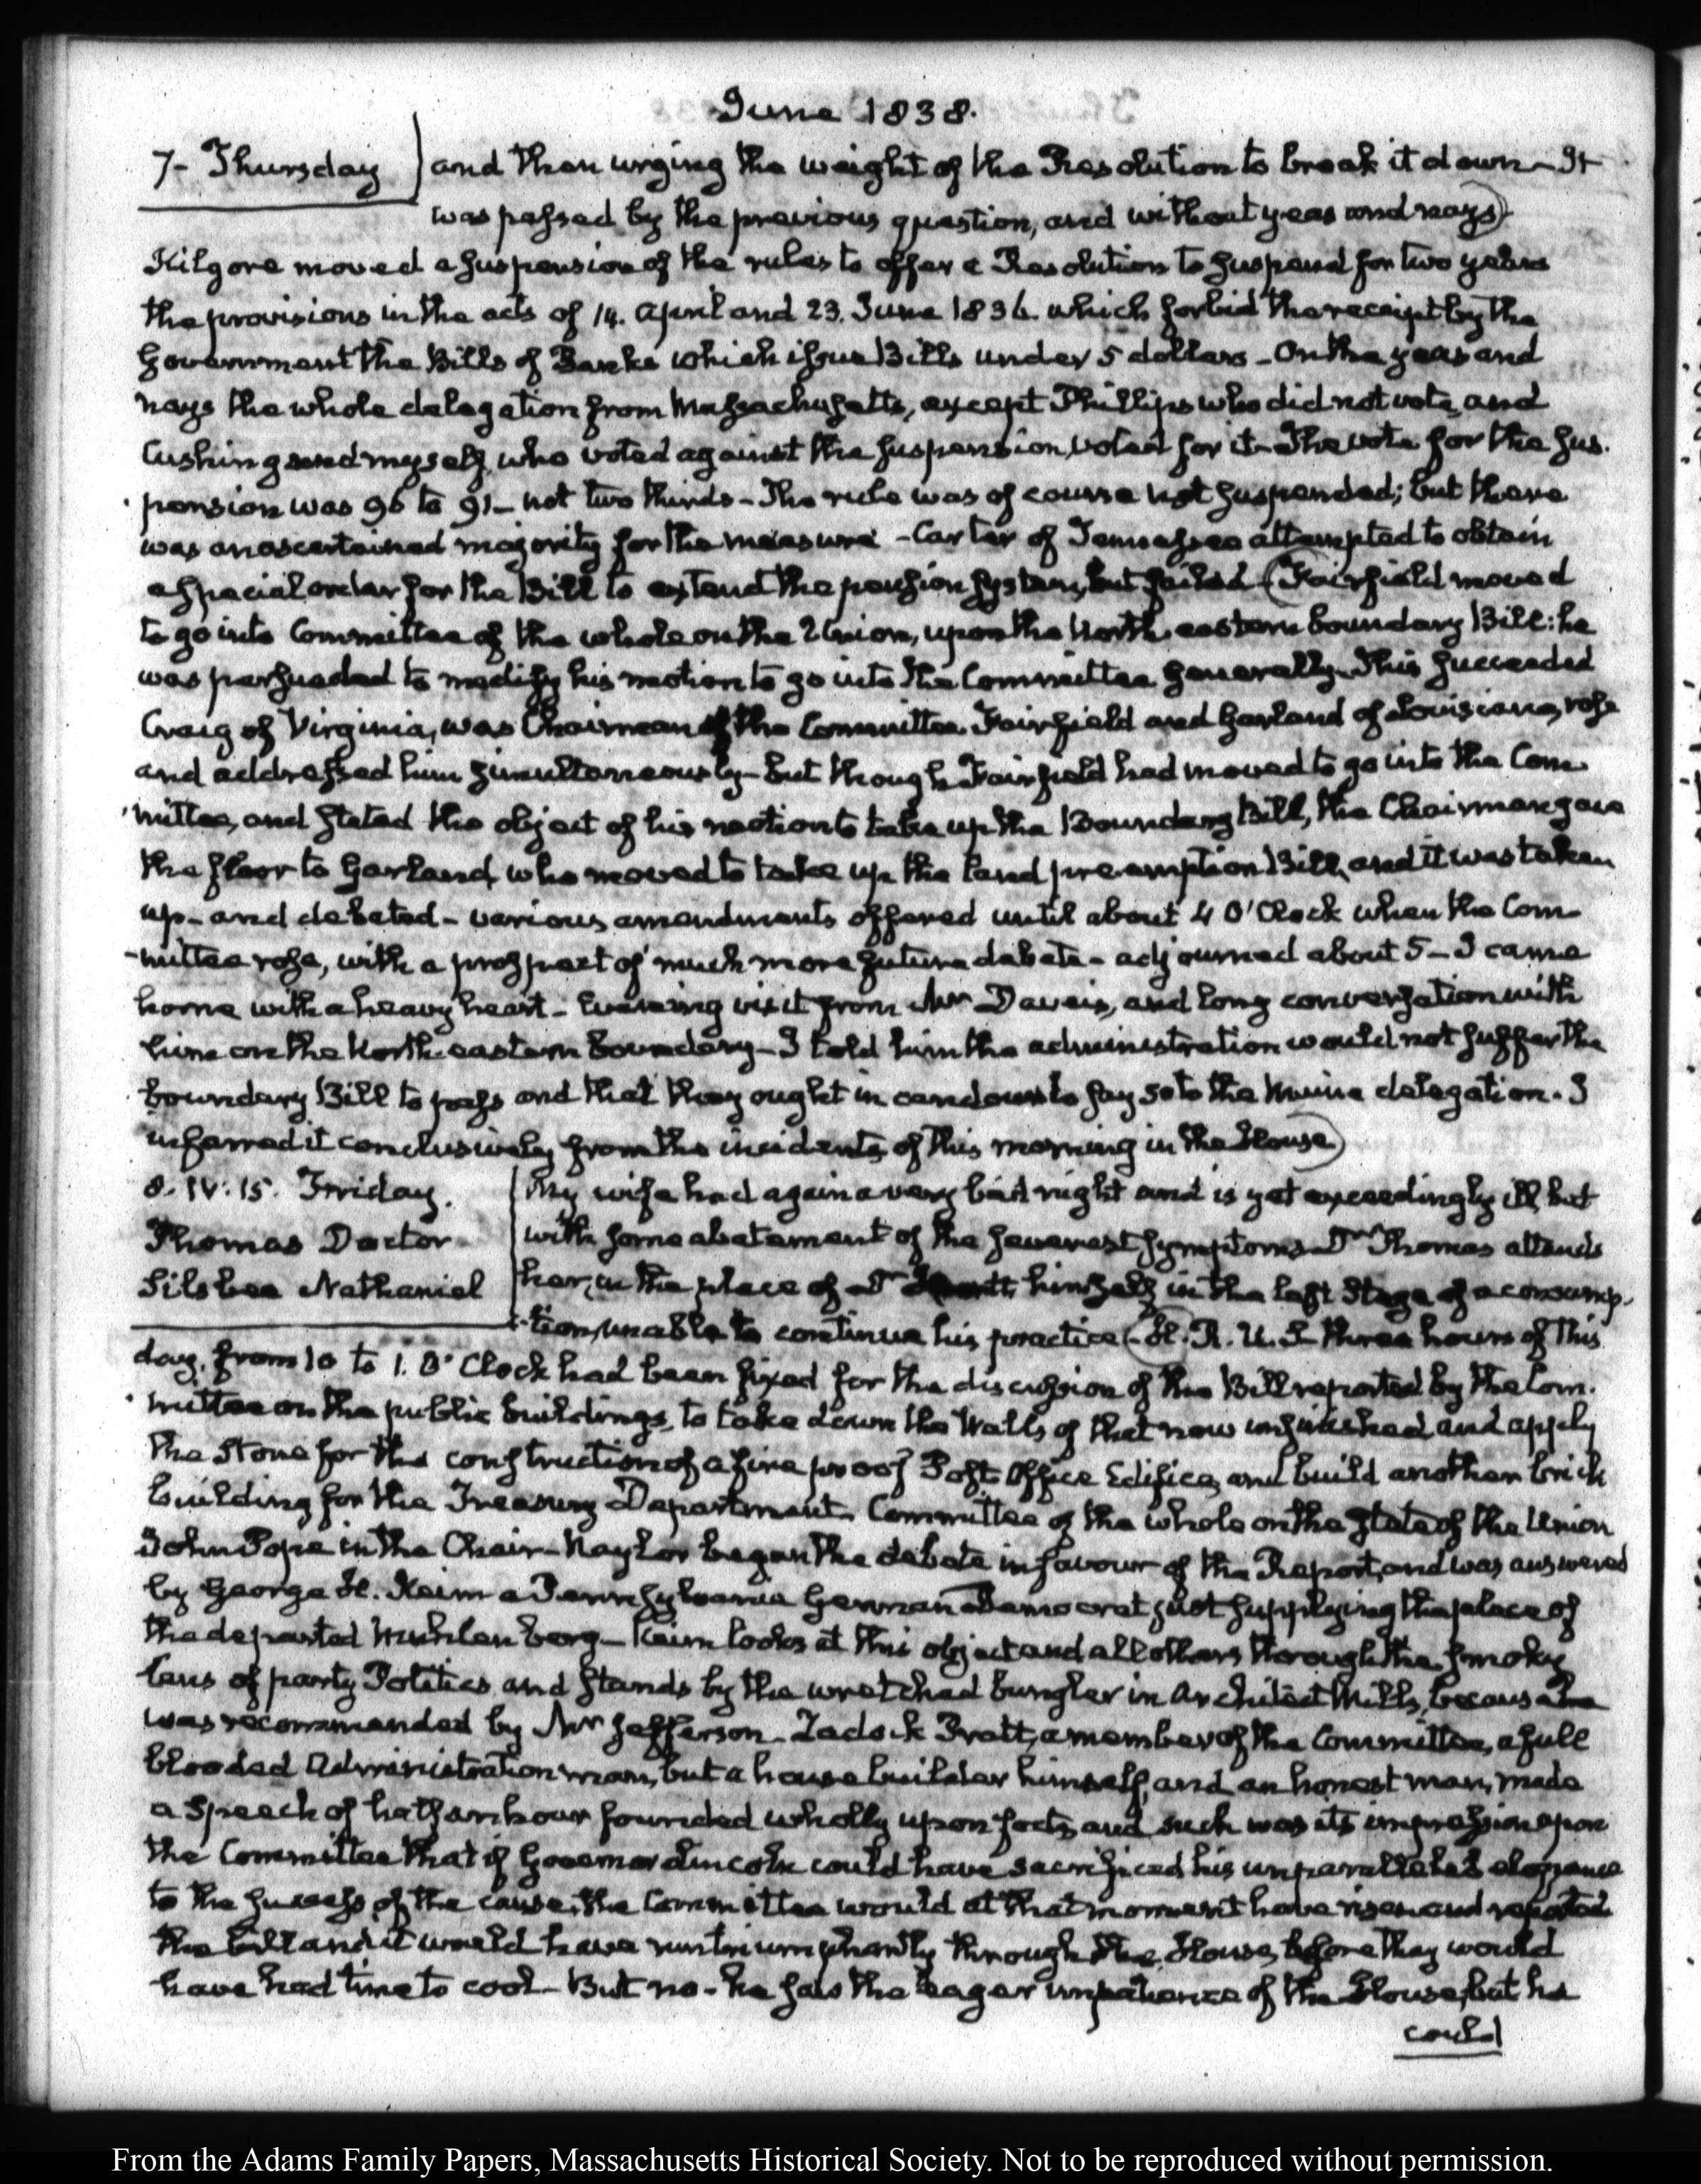 June 1838.
7- Thursday
and then urging the weight of the Resolution to break it down – It
was passed by the previous question, and without yeas and nays)
Kilgore moved a suspension of the rules to offer a Resolution to suspend for two years
the provisions in the acts of 14. April and 23. June 1836. which forbid the receipt by the
Government the Bills of Banks which issue Bills under 5 dollars – On the yeas and
nays the whole delegation from Massachusetts, except Phillips who did not vote, and
Cushing and myself, who voted against the suspension, voted for it – The vote for the sus-
pension was 96 to 91 – not two thirds – The rule was of course not suspended; but there
was an ascertained majority for the measure – Carter of Tennessee attempted to obtain
a special order for the Bill to extend the pension system, but failed (Fairfield moved
to go into Committee of the whole on the Union, upon the North-eastern boundary Bill: he
was persuaded to modify his motion to go into the Committee generally. This succeeded
Craig of Virginia, was Chairman of the Committee. Fairfield and Garland of Louisiana, rose
and addressed him simultaneously – but though Fairfield had moved to go into the Com-
mittee, and stated the object of his motion to take up the Boundary Bill, the Chairman gave
the floor to Garland, who moved to take up the land pre-emption Bill, and it was taken
up – and debated – various amendments offered until about 4 O'Clock when the Com-
-mittee rose, with a prospect of much more future debate – adjourned about 5 – I came
home with a heavy heart – Evening visit from Mr Daveis, and long conversation with
him on the North-eastern boundary – I told him the administration would not suffer the
boundary Bill to pass and that they ought in candour to say so to the Maine delegation. I
inferred it conclusively from the incidents of this morning in the House)
8. IV:15. Friday.
Thomas Doctor
Silsbee Nathaniel
My wife had again a very bad night and is yet exceedingly ill, but
with some abatement of the severest symptoms – Dr Thomas attends
her, in the place of Dr himself in the last stage of a consump-
-tion, unable to continue his practice (H.R.U.S. three hours of this
day, from 10 to 1. O'Clock had been fixed for the discussion of the Bill reported by the Com-
mittee on the public buildings, to take down the Walls of that now unfinished and apply
the Stone for the construction of a fire proof Post Office Edifice, and build another brick
building for the Treasury Department. Committee of the whole on the state of the Union
John Pope in the Chair – Naylor began the debate in favour of the Report, and was answered
by George H. Keim a Pennsylvania German Democrat just supplying the place of
the departed Muhlenberg – Keim looks at this object and all others through the smoky
lens of party Politics and stands by the wretched bungler in Architect Mills, because he
was recommended by Mr Jefferson. Zadock Pratt, a member of the Committee, a full
blooded Administration man, but a house builder himself, and an honest man, made
a speech of half an hour founded wholly upon facts, and such was its impression upon
the Committee that if Governor Lincoln could have sacrificed his unparalleled eloquence
to the success of the cause, the Committee would at that moment have risen and reported
the bill and it would have run triumphantly through the House, before they would
have had time to cool – But no – he saw the eager impatience of the House, but he
could
From the Adams Family Papers, Massachusetts Historical Society. Not to be reproduced without permission.